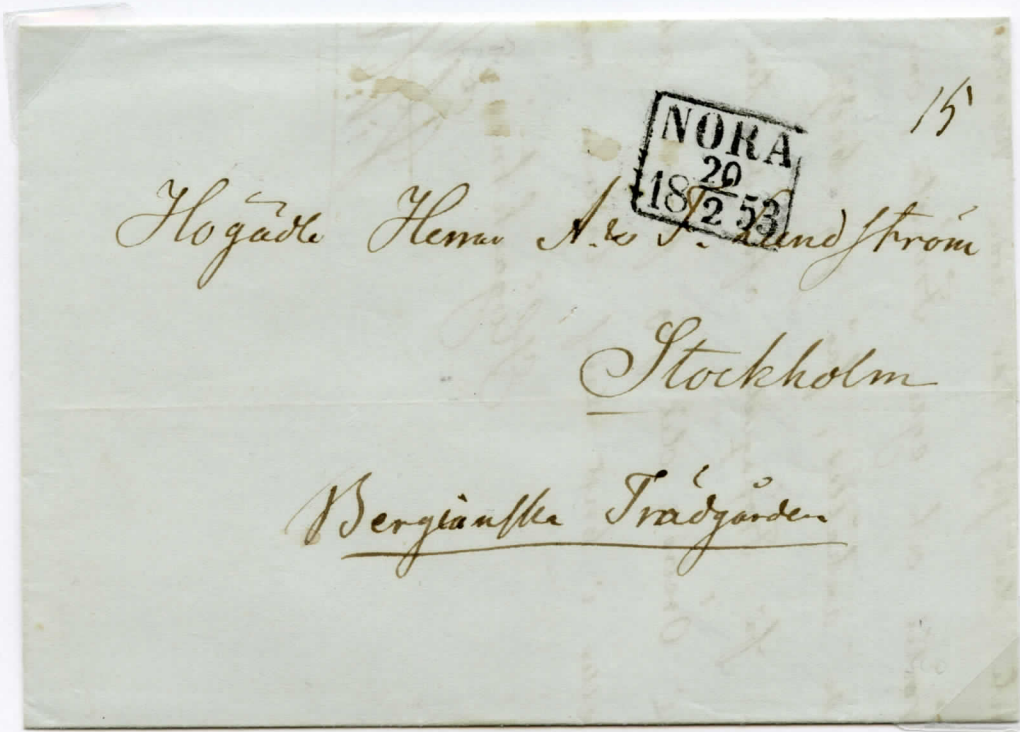 15
NORA
20
18 2 53
Högädle Herrar A. & F. Lundström
Stockholm
Bergianska Trädgården